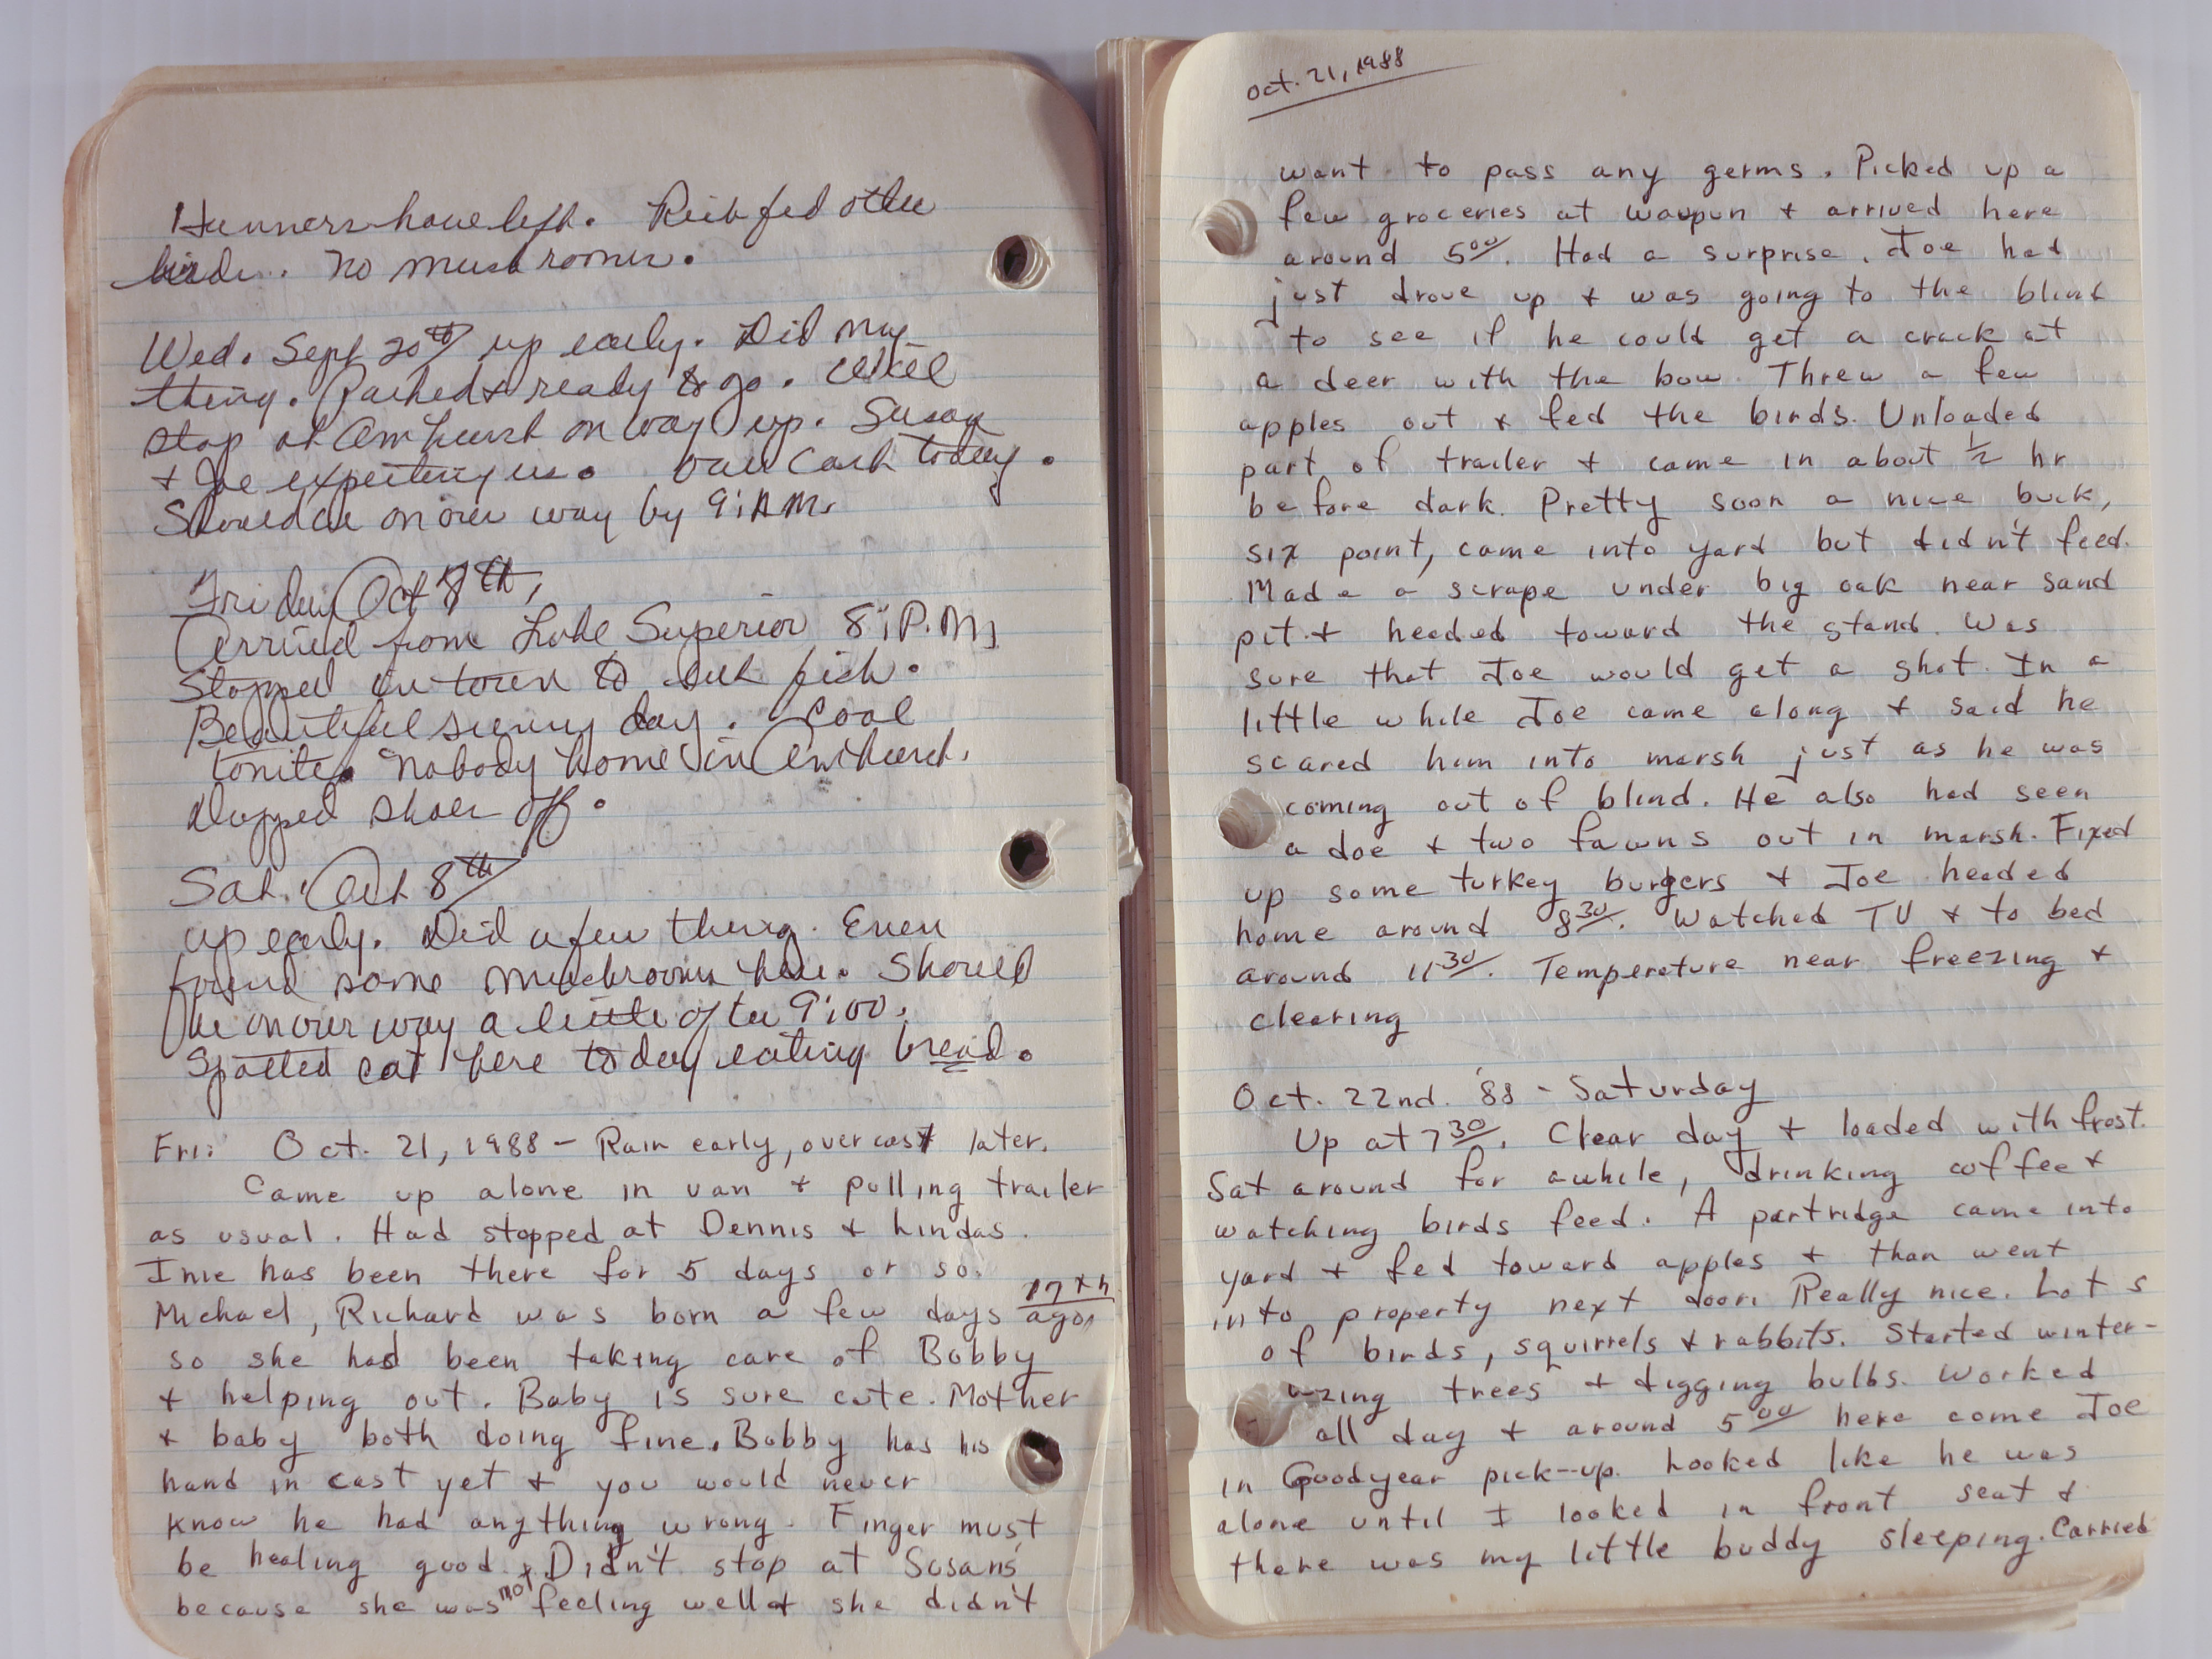 Hunners have left. Rich fed other
birds. No mushrooms.
Wed. Sept 20th up early. Did my
thing. Packed & ready to go. Will
stop at Amhurst on way up. Susan
& Joe expecting us. cash today.
Should be on our way by 9:A.M.
Friday Oct 7th,
Arrived from Lake Superior 8:P.M.
Stopped in town to fish.
Beautiful sunny day. Cool
tonite. Nobody home in Amhurst.
Dropped shoes off.
Sat. Oct 8th
up early. Did a few thing. Even
found some mushrooms here. Should
be on our way a little after 9:00.
Spotted cat here today eating bread.
Fri: Oct. 21, 1988 - Rain early, overcast later.
Came up alone in van & pulling trailer
as usual. Had stopped at Dennis & Lindas.
Inie has been there for 5 days or so.
17th
Michael, Richard was born a few days ago,
so she had been taking care of Bobby
& helping out. Baby is sure cute. Mother
& baby both doing fine. Bobby has his
hand in cast yet & you would never
know he had anything wrong. Finger must
be healing good. Didn't stop at Susans
because she was not feeling well & she didn't
Oct. 21, 1988
want to pass any germs. Picked up a
few groceries at Waupun & arrived here
around 500. Had a surprise. Joe had
just drove up & was going to the blind
to see if he could get a crack at
a deer with the bow. Threw a few
apples out & fed the birds. Unloaded
part of trailer & came in about 1/2 hr
before dark. Pretty soon a nice buck,
six point, came into yard but didn't feed.
Made a scrape under big oak near sand
pit & headed toward the stand. Was
sure that Joe would get a shot. In a
little while Joe came along & said he
scared him into marsh just as he was
coming out of blind. He also had seen
a doe & two fawns out in marsh. Fixed
up some turkey burgers & Joe headed
home around 830. Watched TV & to bed
around 1130. Temperature near freezing &
clearing
Oct. 22nd. '88 - Saturday
Up at 730. Clear day & loaded with frost.
Sat around for awhile, drinking coffee &
watching birds feed. A partridge came into
yard & fed toward apples & than went
into property next door. Really nice. Lots
of birds, squirrels & rabbits. Started winter-
izing trees & digging bulbs. Worked
all day & around 500 here come Joe
in Goodyear pick-up. Looked like he was
alone until I looked in front seat &
there was my little buddy sleeping. Carried